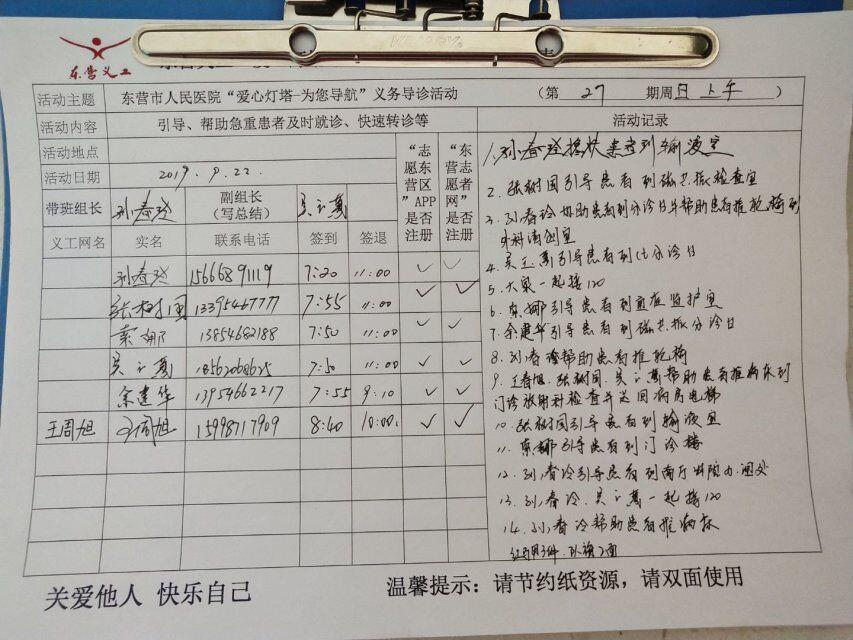 东营义工
活动主题 东营市人民医院“爱心灯塔-为您导航”义务导诊活动 （第 27 期周日上午）
活动内容 引导、帮助急重患者及时就诊、快速转诊等 活动记录
活动地点
活动日期 2019.9.22.
带班组长 孙春玲 副组长（写总结） 吴之蕙
“志愿东营区”APP是否注册
“东营志愿者网”是否注册
义工网名 实名 联系电话 签到 签退
孙春玲 15666891119 7:20 11:00 ✓ ✓
张树国 13395467777 7:55 11:00 ✓ ✓
索娜 13854682188 7:50 11:00 ✓ ✓
18562068625 7:50 11:00 ✓ ✓
余建华 13954662217 7:55 9:10 ✓ ✓
王周旭 王周旭 15998717909 8:40 10:00 ✓ ✓
1. 孙春玲搀扶患者到输液室
2. 张树国引导患者到磁共振检查室
3. 协助患者到分诊台并帮助患者推轮椅到
外科清创室
4. 引导患者到分诊台
5. 大家一起接120
6. 索娜引导患者到重症监护室
7. 余建华引导患者到磁共振分诊台
8. 帮助患者推轮椅
9. 张树国、帮助患者推病床到
门诊放射科检查并送回病房电梯
10. 张树国引导患者到输液室
11. 索娜引导患者到门诊楼
12. 引导患者到
13. 一起接120
14. 帮助患者推病床
关爱他人 快乐自己
温馨提示：请节约纸资源，请双面使用